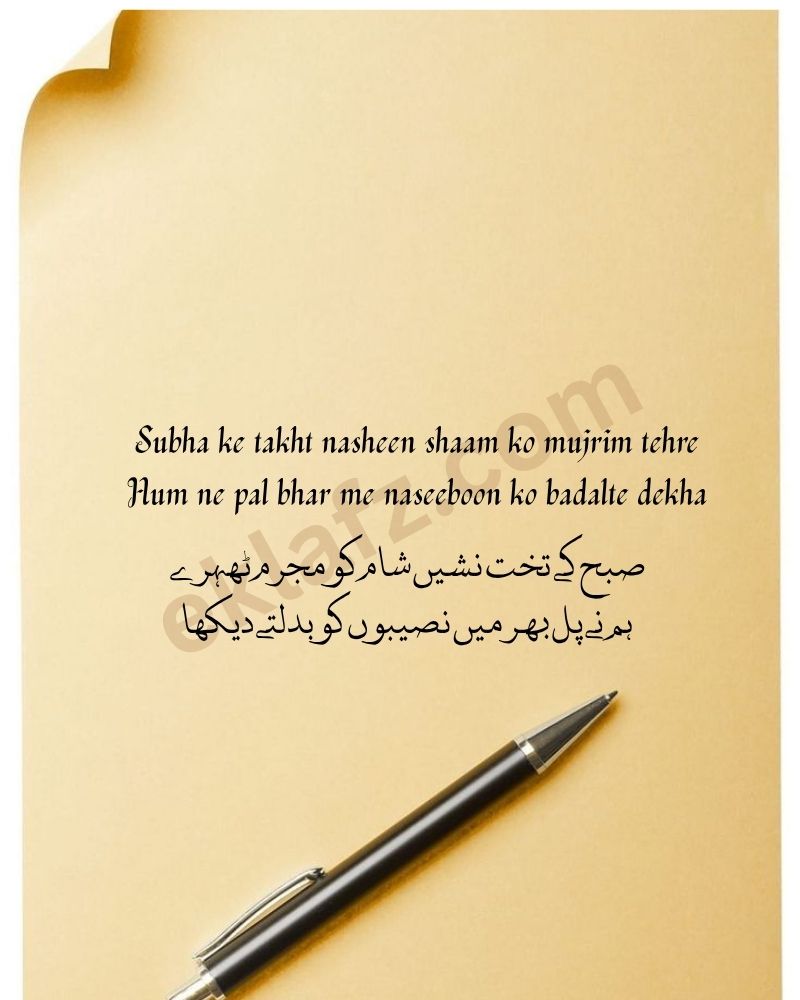 Subha ke takht nasheen shaam ko mujrim tehre
Hum ne pal bhar me naseeboon ko badalte dekha
صبح کے تخت نشیں شام کو مجرم ٹھہرے
ہم نے پل بھر میں نصیبوں کو بدلتے دیکھا
eklafz.com